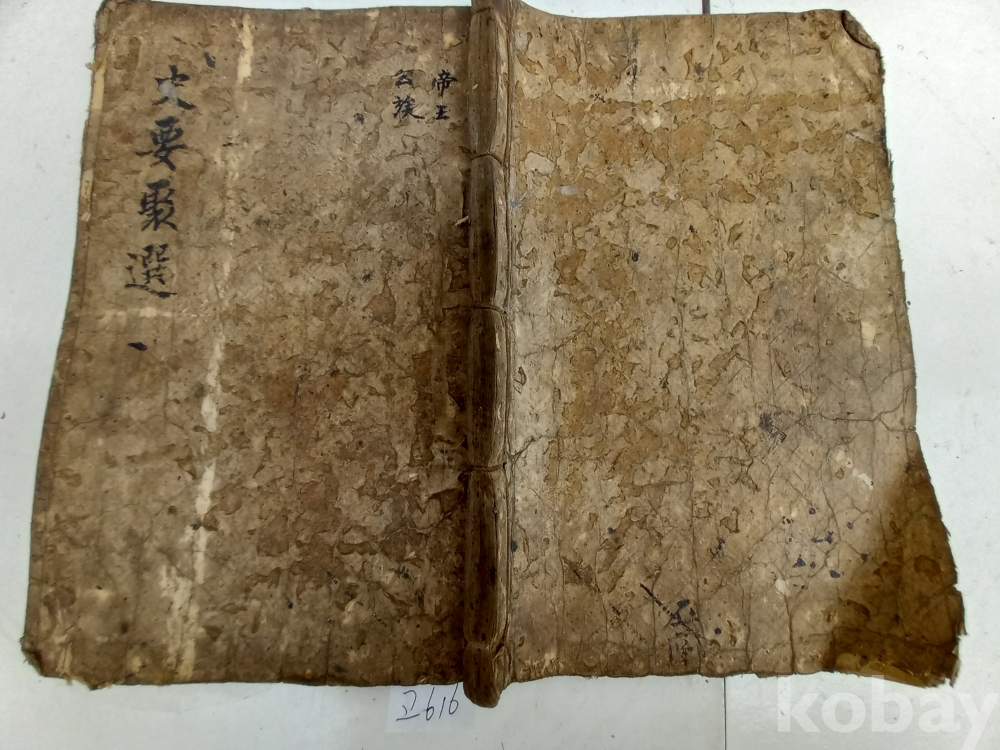 史要聚選 一
帝王
公族
고616
kobay